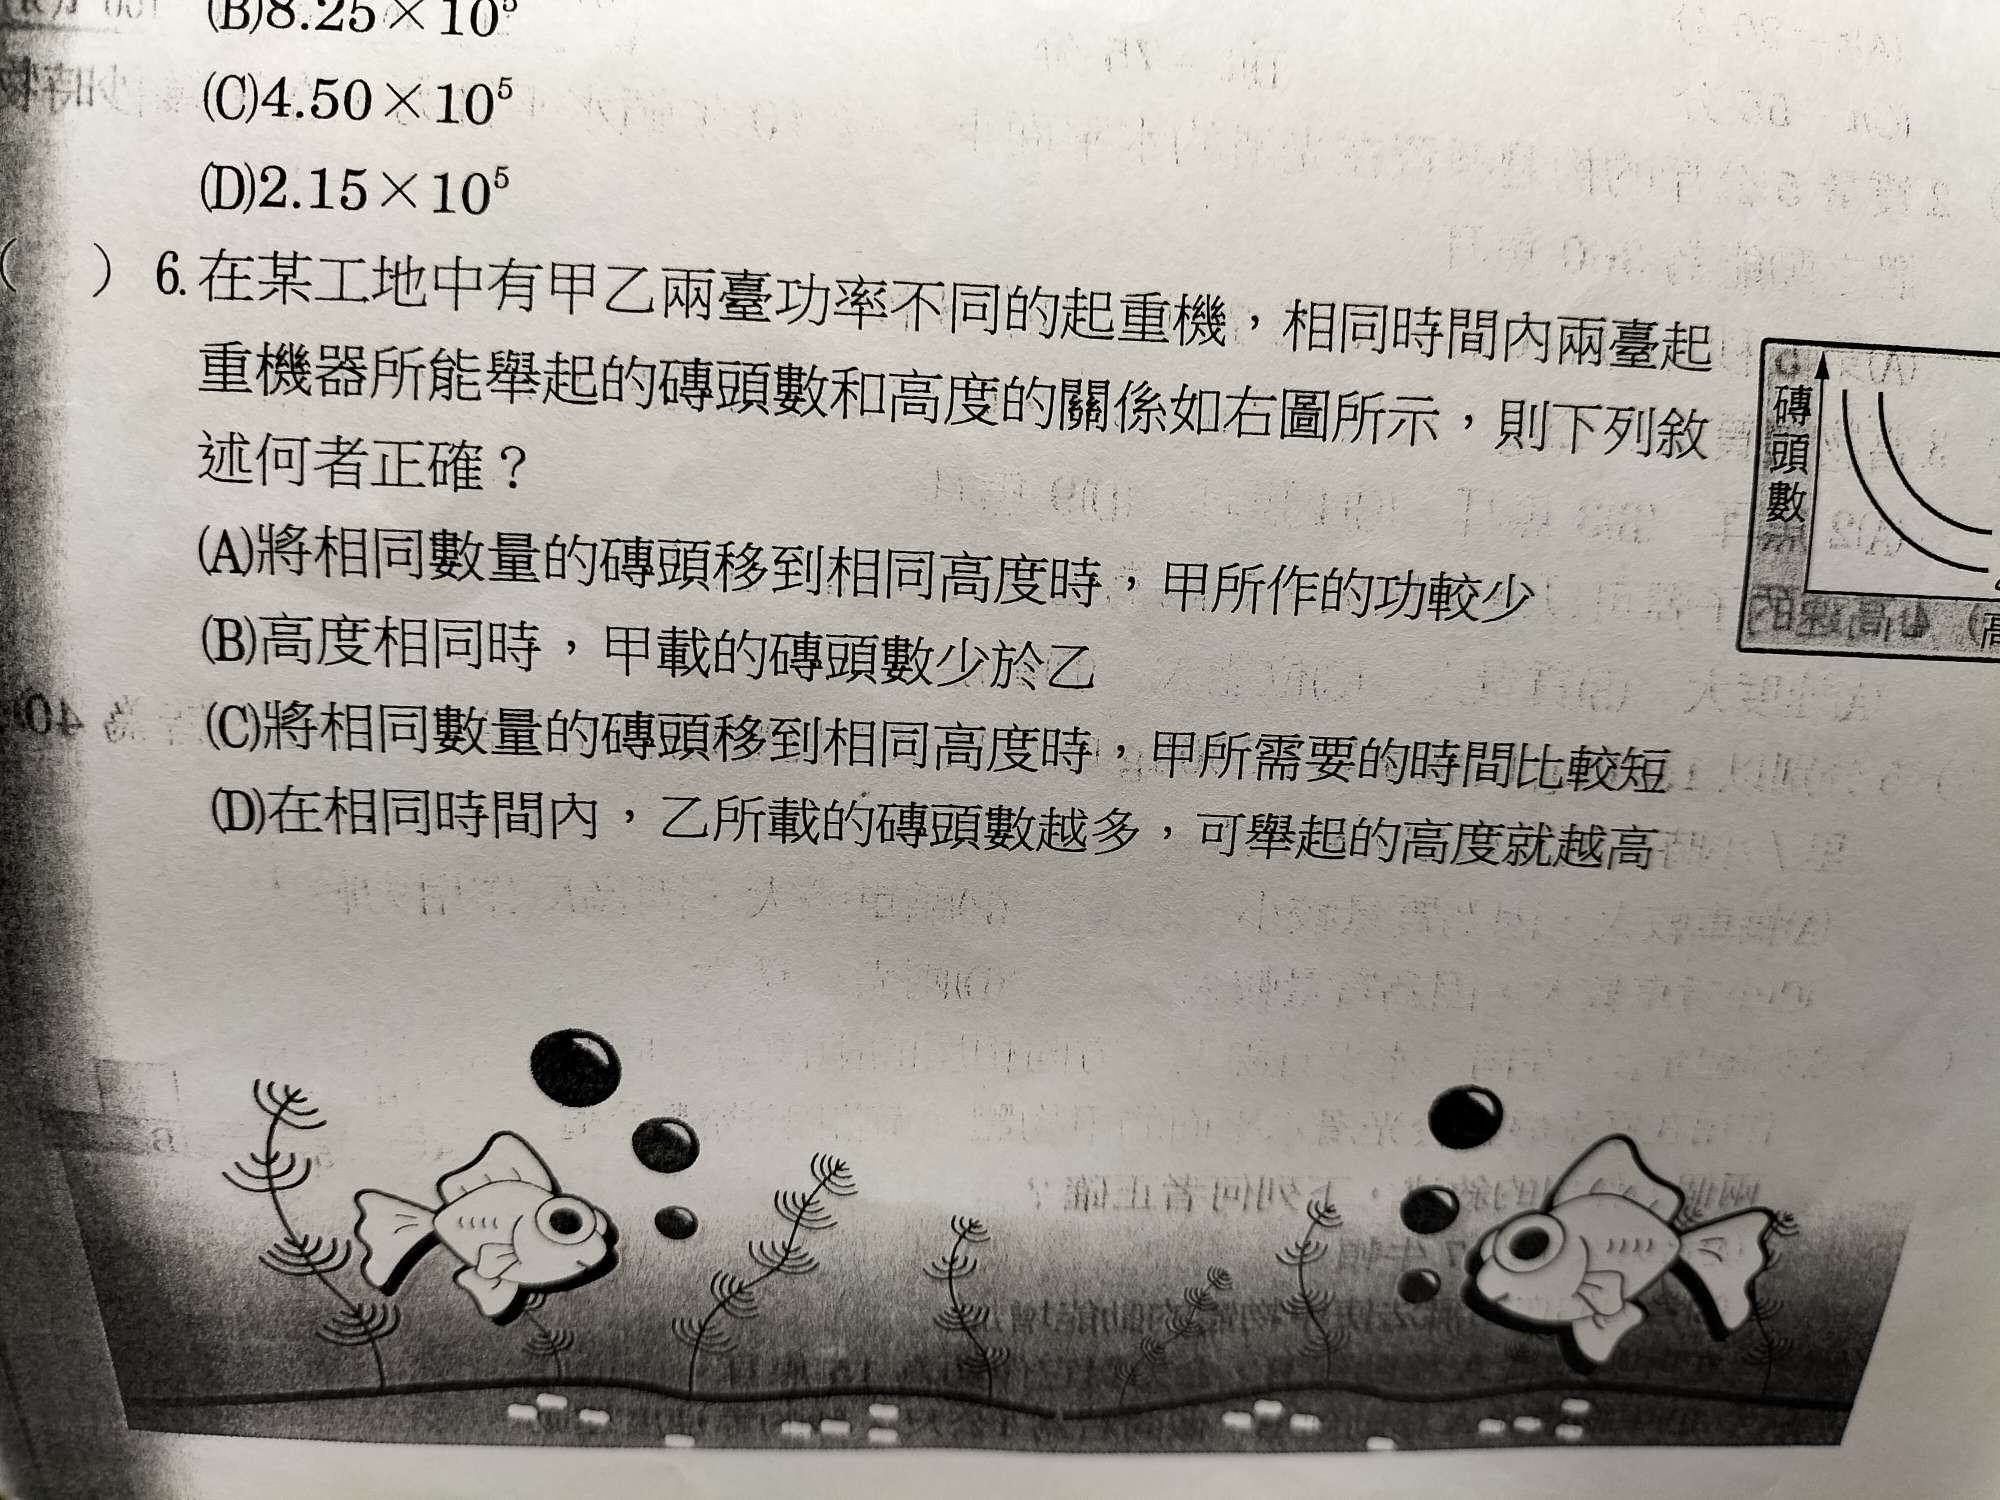 (B)8.25×10⁵
(C)4.50×10⁵
(D)2.15×10⁵
( ) 6. 在某工地中有甲乙兩臺功率不同的起重機，相同時間內兩臺起
重機器所能舉起的磚頭數和高度的關係如右圖所示，則下列敘
述何者正確？
(A)將相同數量的磚頭移到相同高度時，甲所作的功較少
(B)高度相同時，甲載的磚頭數少於乙
(C)將相同數量的磚頭移到相同高度時，甲所需要的時間比較短
(D)在相同時間內，乙所載的磚頭數越多，可舉起的高度就越高
磚頭數